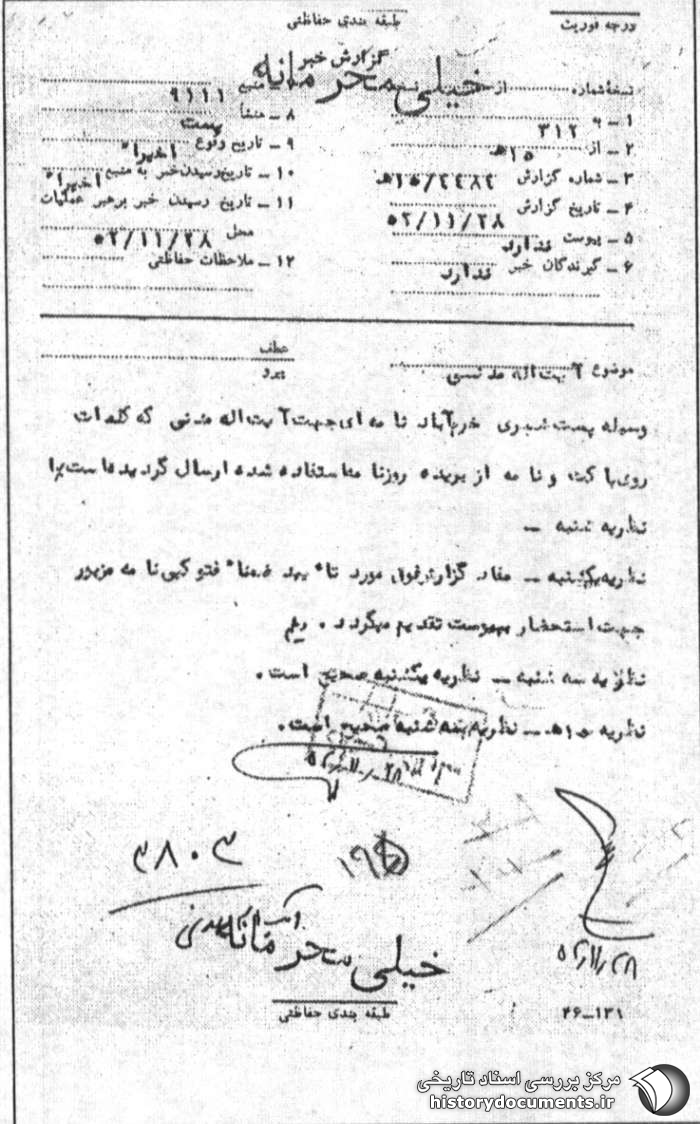 درجه فوریت
طبقه بندی حفاظتی
گزارش خبر
خیلی محرمانه
نسخهٔ شماره از
۱ ـ به ۳۱۲
۲ ـ از ۱۵هـ
۳ ـ شماره گزارش ۱۵/۲۴۸۴هـ
۴ ـ تاریخ گزارش ۵۲/۱۱/۲۸
۵ ـ پیوست ندارد
۶ ـ گیرندگان خبر ندارد
منبع ۹۱۱۱
۸ ـ منشأ پست
۹ ـ تاریخ وقوع اخیراً
۱۰ ـ تاریخ رسیدن خبر به منبع اخیراً
۱۱ ـ تاریخ رسیدن خبر برهبر عملیات
محل ۵۲/۱۱/۲۸
۱۲ ـ ملاحظات حفاظتی
عطف
پیرو
موضوع آیت اله مدنی
وسیله پست شهری خرم‌آباد نامه ای جهت آیت اله مدنی که کلمات
روی پاکت و نامه از بریده روزنامه استفاده شده ارسال گردیده است
نظریه شنبه ـ
نظریه یکشنبه ـ مفاد گزارش فوق مورد تائید ضمناً فتوکپی نامه مزبور
جهت استحضار بپیوست تقدیم میگردد .
نظریه سه شنبه ـ نظریه یکشنبه صحیح است .
نظریه ۱۵هـ ـ نظریه سه شنبه صحیح است .
۳۸۰۳
خیلی محرمانه
۵۲/۱۱/۲۸
طبقه بندی حفاظتی
۴۶ـ۱۳۱
مرکز بررسی اسناد تاریخی
historydocuments.ir